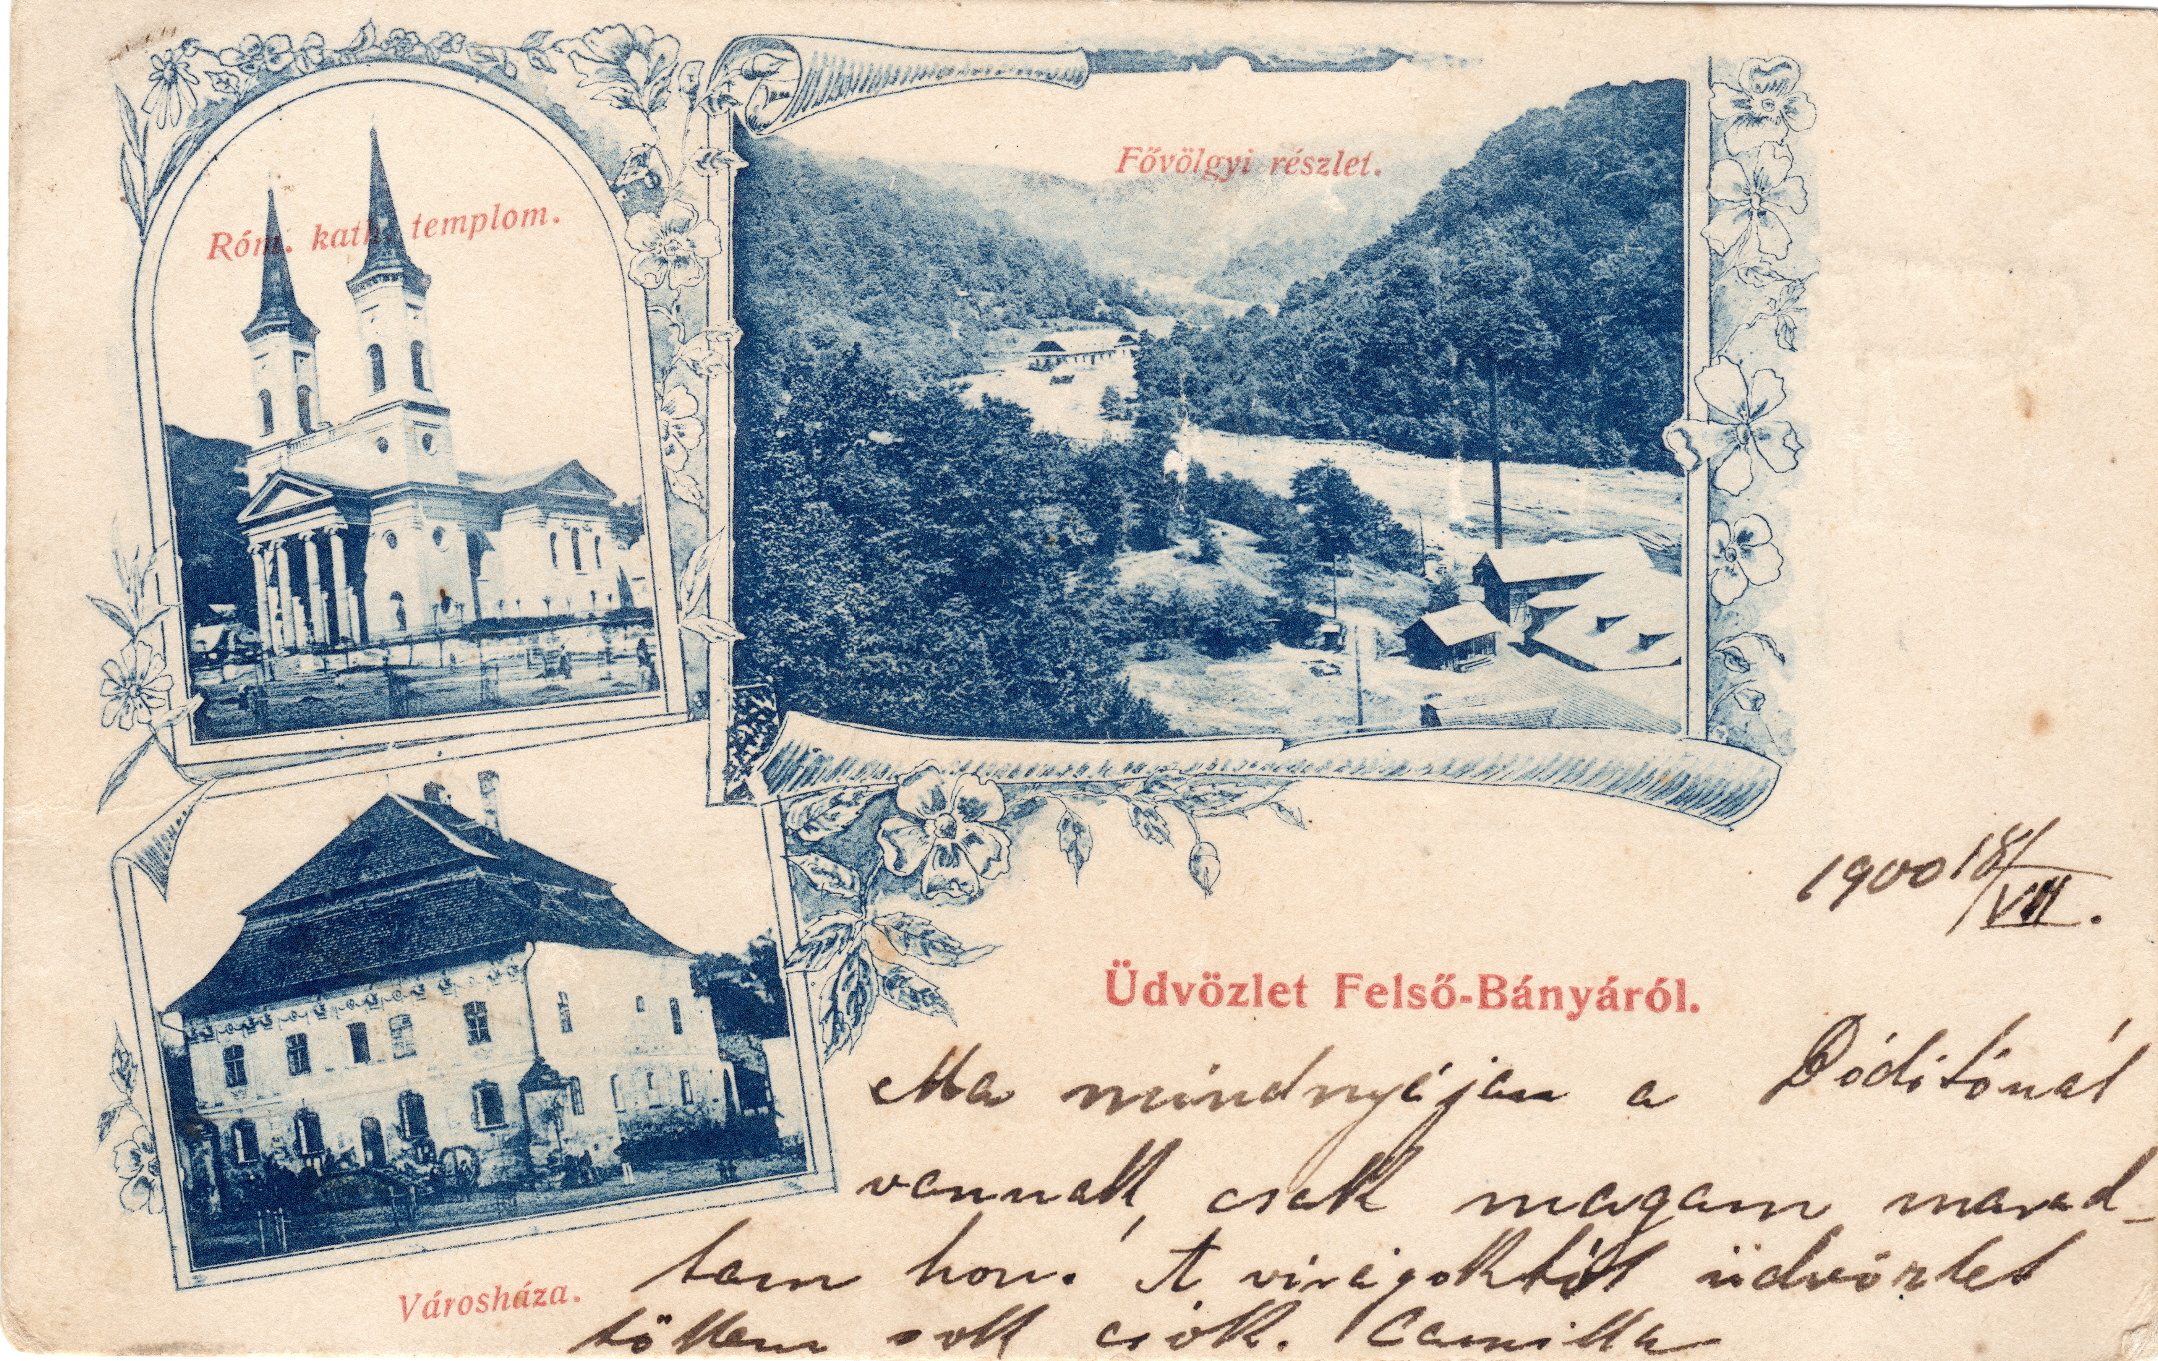 Róm. kath. templom.
Fővölgyi részlet.
1900 18/VII.
Üdvözlet Felső-Bányáról.
Ma mindnyájan a Dóditónál
vannak, csak magam marad-
tam hon. A virágoktól üdvözlet
tőllem sok csók. Camilla
Városháza.